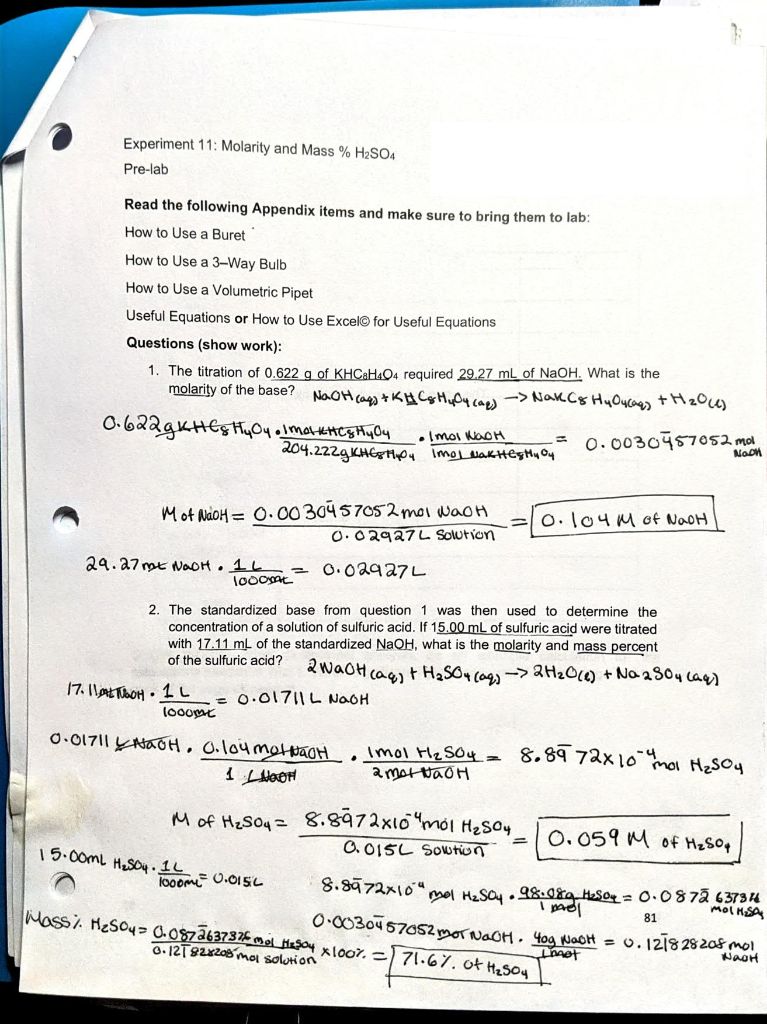 Experiment 11: Molarity and Mass % H₂SO₄
Pre-lab
Read the following Appendix items and make sure to bring them to lab:
How to Use a Buret
How to Use a 3–Way Bulb
How to Use a Volumetric Pipet
Useful Equations or How to Use Excel© for Useful Equations
Questions (show work):
1. The titration of 0.622 g of KHC₈H₄O₄ required 29.27 mL of NaOH. What is the
molarity of the base? NaOH(aq) + KHC₈H₄O₄(aq) → NaKC₈H₄O₄(aq) + H₂O(l)
0.622g KHC₈H₄O₄ • 1mol KHC₈H₄O₄ / 204.222g KHC₈H₄O₄ • 1mol NaOH / 1mol NaKHC₈H₄O₄ = 0.0030457052 mol NaOH
M of NaOH = 0.0030457052 mol NaOH / 0.02927L Solution = 0.104 M of NaOH
29.27 mL NaOH • 1 L / 1000mL = 0.02927L
2. The standardized base from question 1 was then used to determine the
concentration of a solution of sulfuric acid. If 15.00 mL of sulfuric acid were titrated
with 17.11 mL of the standardized NaOH, what is the molarity and mass percent
of the sulfuric acid? 2NaOH(aq) + H₂SO₄(aq) → 2H₂O(l) + Na₂SO₄(aq)
17.11mL NaOH • 1 L / 1000mL = 0.01711 L NaOH
0.01711 L NaOH • 0.104 mol NaOH / 1 L NaOH • 1mol H₂SO₄ / 2 mol NaOH = 8.8972×10⁻⁴ mol H₂SO₄
M of H₂SO₄ = 8.8972×10⁻⁴ mol H₂SO₄ / 0.015L Solution = 0.059 M of H₂SO₄
15.00mL H₂SO₄ • 1L / 1000mL = 0.015L
8.8972×10⁻⁴ mol H₂SO₄ • 98.08g H₂SO₄ / 1 mol = 0.0872637376 mol H₂SO₄
81
0.0030457052 mol NaOH • 40g NaOH / 1 mol = 0.121828208 mol NaOH
Mass % H₂SO₄ = 0.0872637376 mol H₂SO₄ / 0.121828208 mol solution × 100% = 71.6% of H₂SO₄